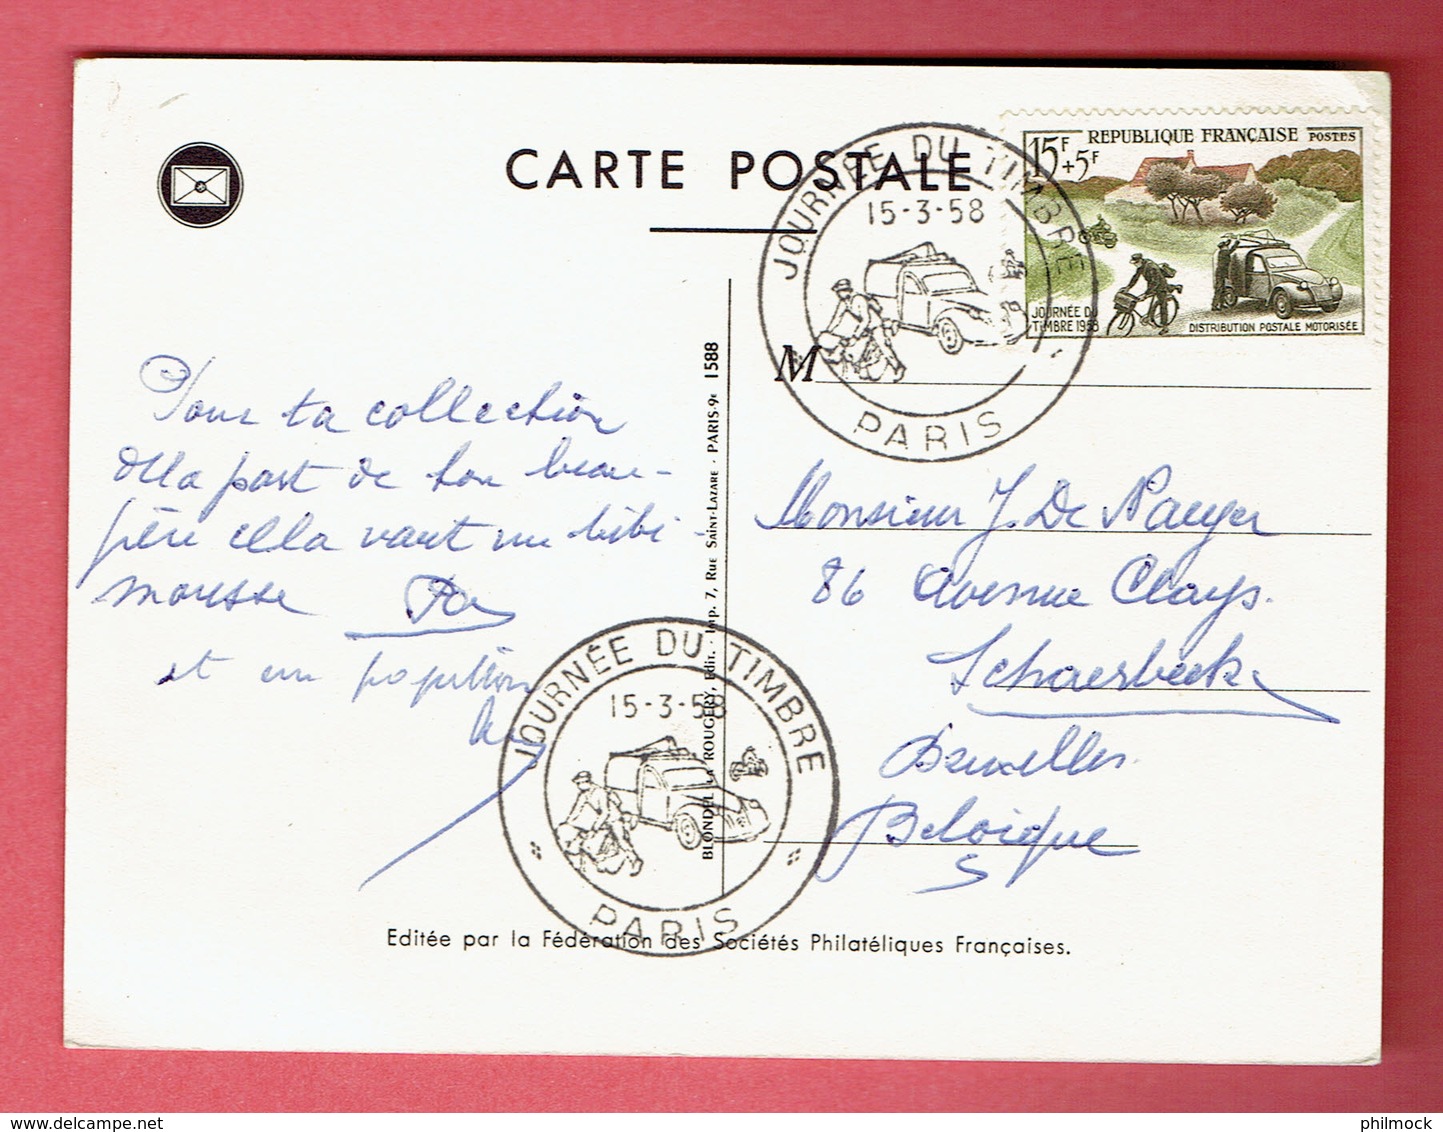 CARTE POSTALE
RÉPUBLIQUE FRANÇAISE POSTES
15F+5F
JOURNÉE DU
TIMBRE 1958
DISTRIBUTION POSTALE MOTORISÉE
JOURNÉE DU TIMBRE
15-3-58
PARIS
M
Pour ta collection
de la part de ton beau-
père ella vaut un bibi-
mousse
et un papillon
Monsieur J. De
86 Avenue Clays.
Schaerbeek
Bruxelles.
Belgique
BLONDEL LA ROUGERY, Édit. - Imp. 7, Rue Saint-Lazare - PARIS-9e 1588
JOURNÉE DU TIMBRE
15-3-58
PARIS
Editée par la Fédération des Sociétés Philatéliques Françaises.
philmock